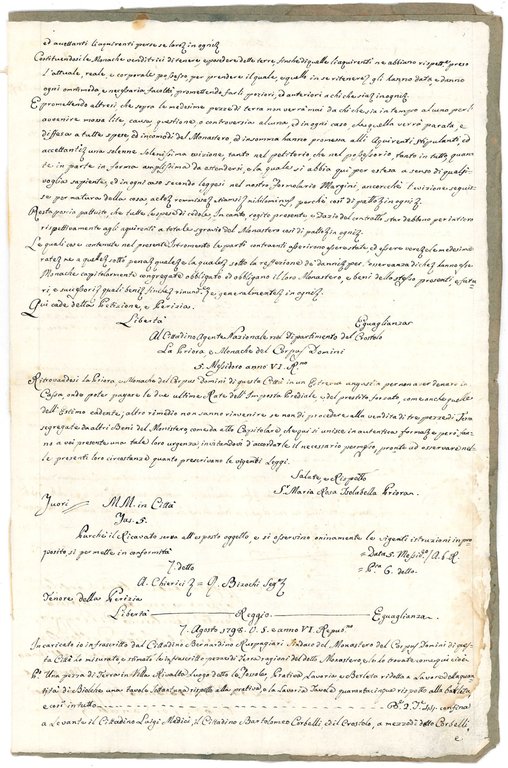 ed accettanti li aquirenti per se loro in ogni
Costituendosi le Monache venditrici di tenere, e possedere dette terre, finchè di quelle li aquirenti ne abbiano rispett. preso
l'attuale, reale, e corporale possesso per prendere il quale, e quello in se ritenere gli hanno data, e danno
ogni ontimoda, e necessaria facoltà promettendo farli poriori, ed anteriori a chi chesia in ogni
E promettendo altresi che sopra le medesime pezze di terra non verrà mai da chi che sia in tempo alcuno per l'
avvenire mossa lite, causa, questione, o controversia alcuna, ed in ogni caso che quella verrà parata, e
diffesa a tutte spese, ed incomodi del Monastero, ed insomma hanno promessa alli Aquirenti, stipulanti, ed
accettanti una solenne solenissima evizione, tanto nel petitorio che nel possessorio, tanto in tutto, quan
te in parte in forma amplissima da estendersi, e la quale si abbia qui per estesa a senso di qualsi
voglia sapiente, ed in ogni caso secondo leggesi nel nostro Formolario Margini, ancorchè l'evizione seguis
se per natura della cosa nihilominus, perchè così di patto in ogni
Resta perciò pattuito, che tutte le spese di cedole, In canto, rogito presente, e Dazio del contratto star debbano per intiero
rispettivamente agli aquirenti a totale sgravio del Monastero così di patto in ogni
Le quali cose contenute nel presente Istromento le parti contraenti asserirono essere state, ed essere vere, e le medesime
rate ne a quelle sotto pena la quale sotto la refezione de' danni per osservanza di che hanno esse
Monache capitolarmente congregate obbligato ed obbligano il loro Monastero, e beni dello stesso presenti, e futu
ri, e successori quali beni e generalmente in ogni
Qui cade della Petizione, e Perizia.
Libertà Eguaglianza
Al Cittadino Agente Nazionale nel Dipartimento del Crostolo
La Priora, e Monache del Corpus Domini
5. Messidoro anno VI. Rno
Ritrovandosi la Priora, e Monache del Corpus Domini di questa Città in un Estrema angustia per non aver denaro in
Cassa, onde poter pagare le due ultime Rate dell'Imposta Prediale, e del prestito forzato, come anche quelle
dell'Estimo cadente, altro rimedio non sanno rinvenire se non di procedere alla vendita di tre pezze di Terra
segregate da altri Beni del Monistero come da atto Capitolare che qui si unisce in autentica forma, e però fan
no a voi presente una tale loro urgenza, insistendovi d'accordarle il necessario permesso, pronte ad osservare nel
le presenti loro circostanze quanto prescrivono le vigenti Leggi.
Salute, e Rispetto
Sr Maria Rosa Isolabella Priora
Fuori MM. in Città
Jas. 5.
Purchè il Ricavato serva all'esposto oggetto, e si osservino oninamente le vigenti istruzioni in pro
posito, si permette in conformità = Data 5. Messid. A. 6. R.
7. detto = Pta 6. detto
A. Chierici = Q. Bizochi Seg
Tenore della Perizia
Libertà Reggio Eguaglianza
7. Agosto 1798. V. S. e anno VI Repub.
Incaricato io infrascritto dal Cittadino Bernardino Ruspagiari Fattore del Monastero del Corpus Domini di ques
ta Città ho misurate, e stimate le infrascritte pezze di Terra ragioni del detto Monastero, e le ho trovate come qui cioè
Pa Una pezza di Terra in Villa Rivalta Luogo detto le Fosole, Prativa, Lavoria, e Berleta ridotta a Lavoro della quan
tità di Biolche una tavole rispetto alla prativa, e la Lavoria Tavole quarantacinque rispetto alla berleta,
e così in tutto B. 2. T. 41. confina
a Levante il Cittadino Luigi Medici, il Cittadino Bartolomeo Corbelli, e il Crostolo, a mezzodì detto Corbelli,
e.